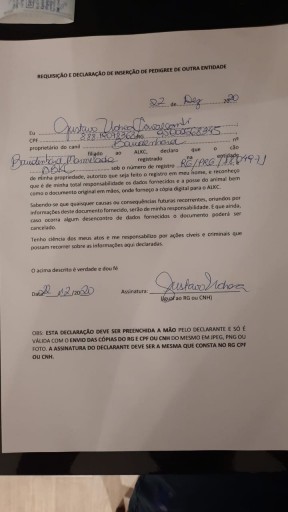 REQUISIÇÃO E DECLARAÇÃO DE INSERÇÃO DE PEDIGREE DE OUTRA ENTIDADE
22 de Dez 20
Eu Gustavo Uchoa Cavalcanti
CPF nº
proprietário do canil Bandenhaus
filiado ao ALKC, declaro que o cão
Bandenhaus Marmelada registrado na entidade
OBKC, sob o número de registro RG/PRG/
de minha propriedade, autorizo que seja feito o registro em meu nome, e reconheço
que é de minha total responsabilidade os dados fornecidos e a posse do animal bem
como o documento original em mãos, onde forneço a cópia digital para o ALKC.
Sabendo se que quaisquer causas ou consequências futuras recorrentes, oriundos por
informações deste documento fornecido, serão de minha responsabilidade. E que ainda,
caso ocorra algum desencontro de dados fornecidos o documento poderá ser
cancelado.
Tenho ciência dos meus atos e me responsabilizo por ações cíveis e criminais que
possam recorrer sobre as informações aqui declaradas.
O acima descrito é verdade e dou fé
Assinatura: Gustavo Uchoa
(Igual ao RG ou CNH)
OBS: ESTA DECLARAÇÃO DEVE SER PREENCHIDA A MÃO PELO DECLARANTE E SÓ É
VÁLIDA COM O ENVIO DAS CÓPIAS DO RG E CPF OU CNH DO MESMO EM JPEG, PNG OU
FOTO. A ASSINATURA DO DECLARANTE DEVE SER A MESMA QUE CONSTA NO RG CPF
OU CNH.